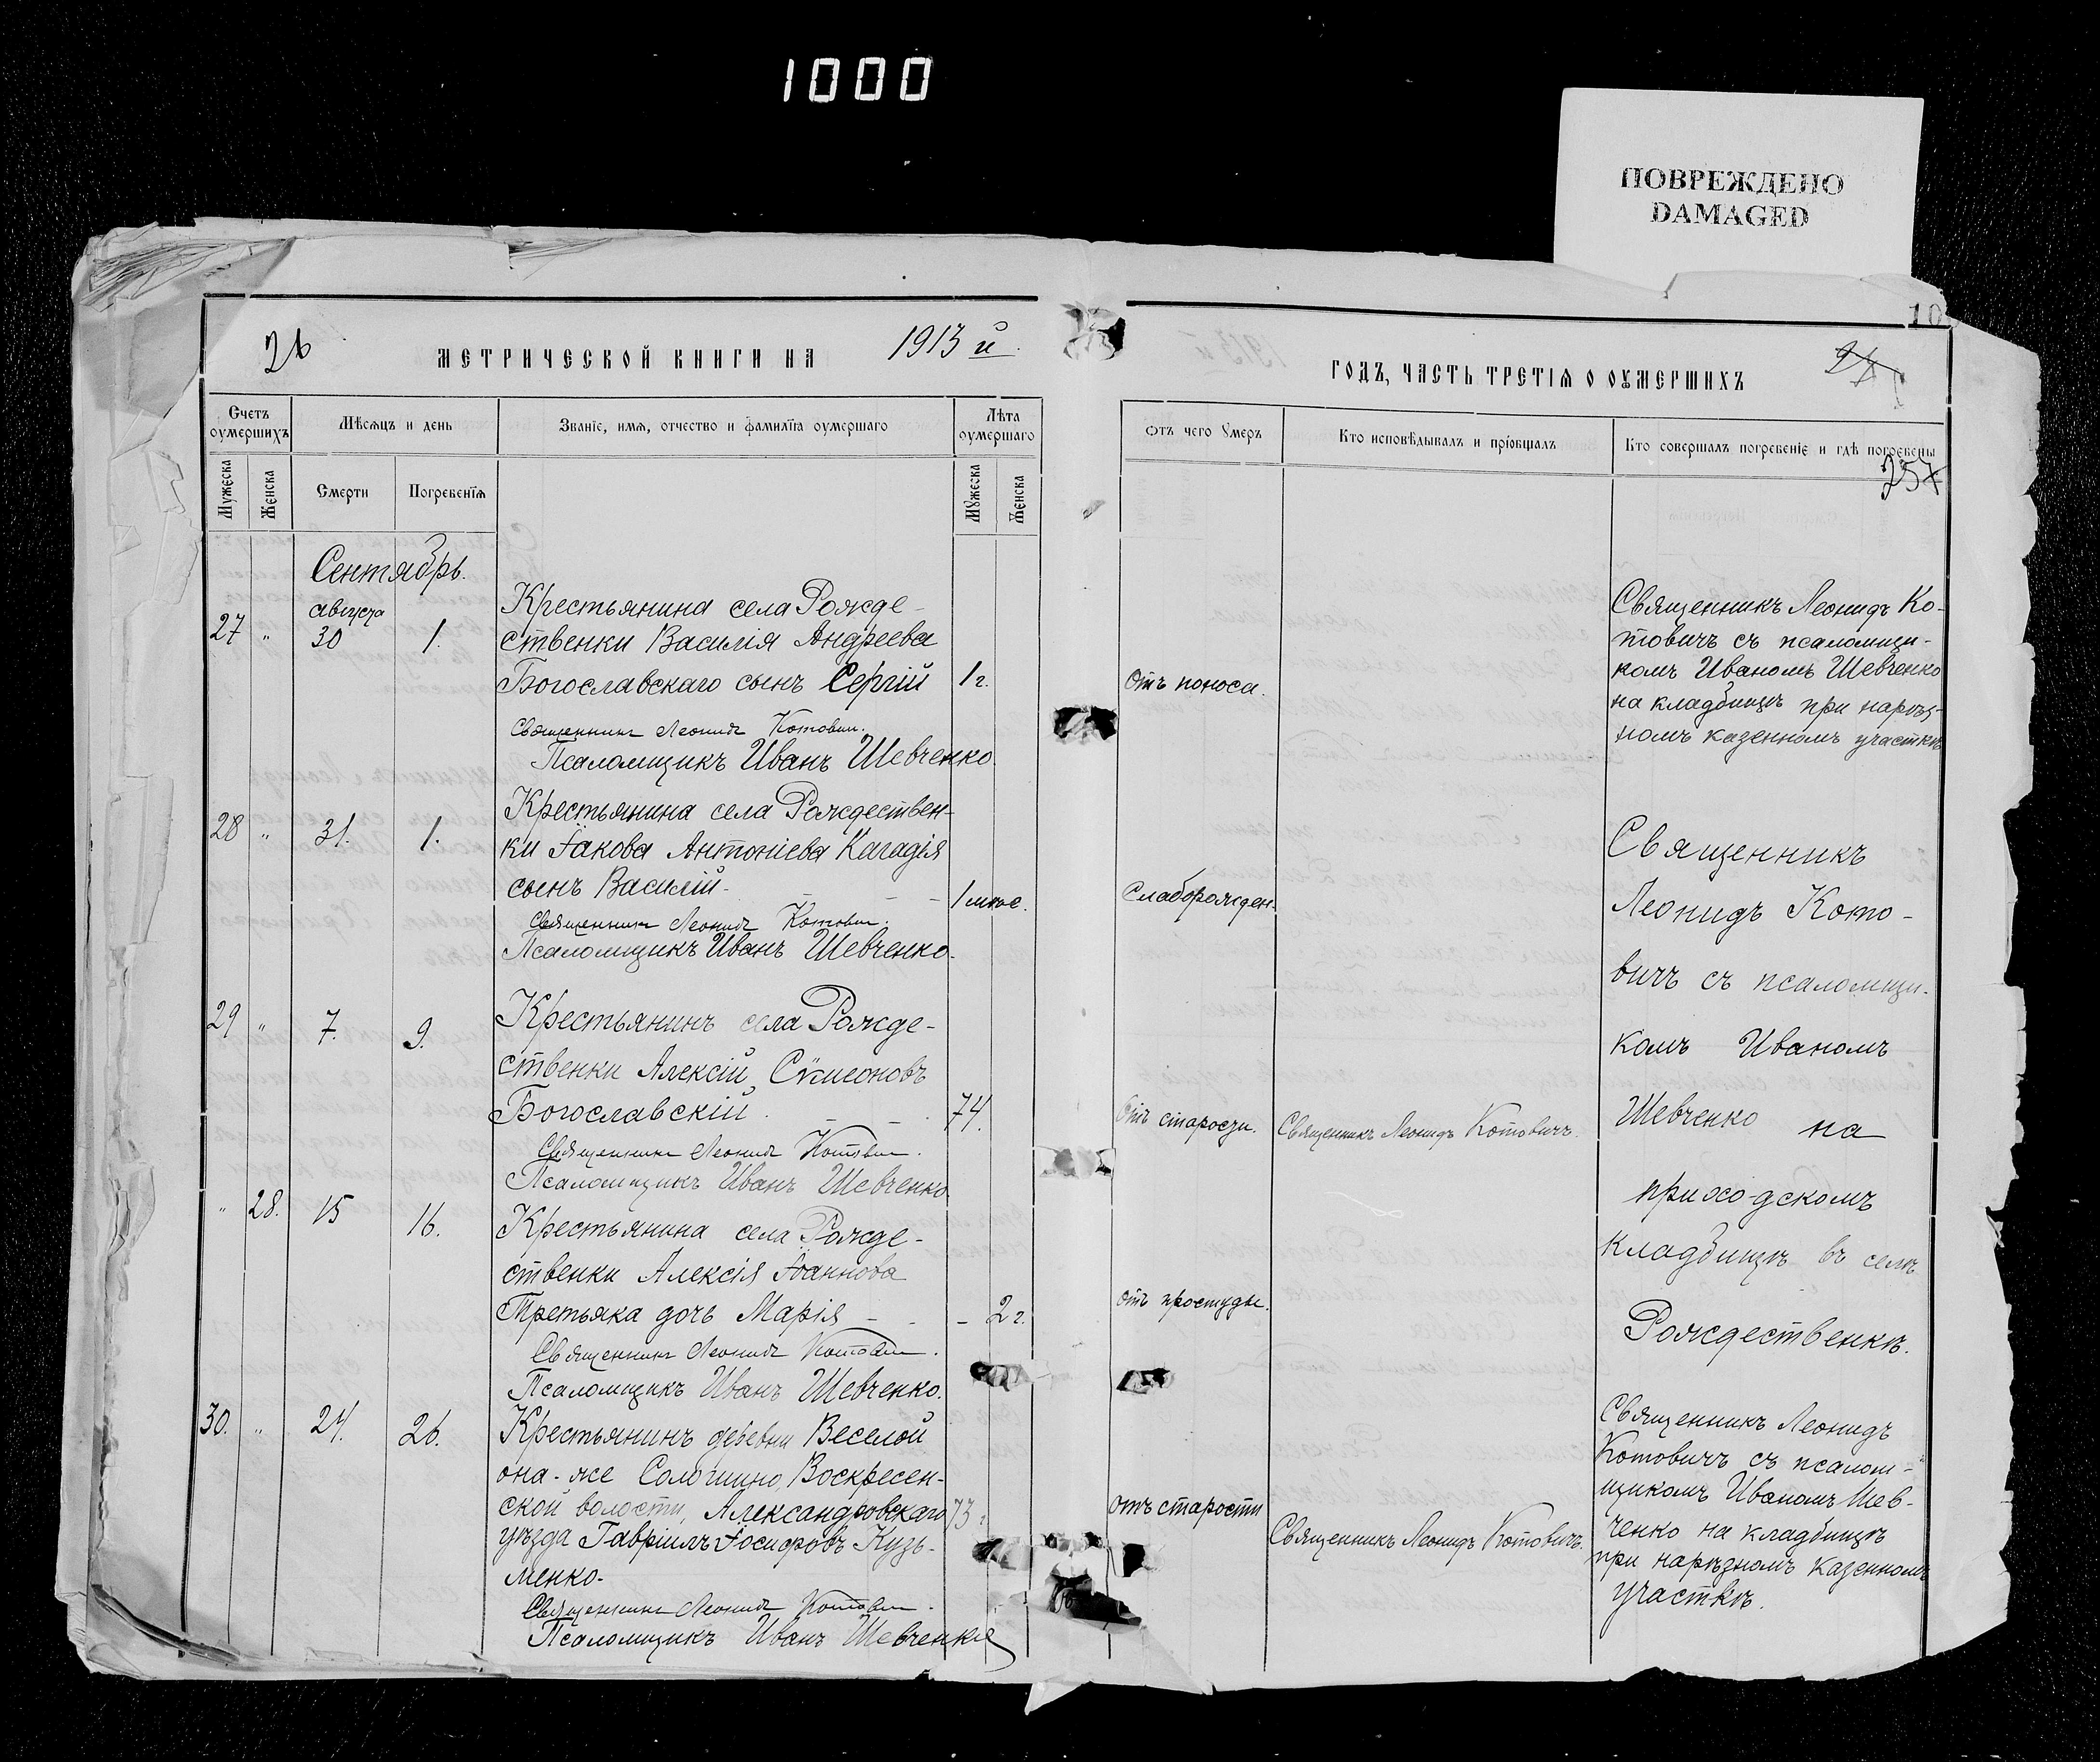 1000
ПОВРЕЖДЕНО
DAMAGED
10
26
МЕТРИЧЕСКОЙ КНИГИ НА
1913 й
ГОДЪ, ЧАСТЬ ТРЕТІЯ О ОУМЕРШИХЪ
Счетъ оумершихъ
Мѣсяцъ и день
Званіе, имя, отчество и фамилія оумершаго
Лѣта оумершаго
Отъ чего умеръ
Кто исповѣдывалъ и пріобщалъ
Кто совершалъ погребеніе и гдѣ погребены
257
Мужеска
Женска
Смерти
Погребенія
Мужеска
Женска
Сентябрь.
27 " августа 30 1.
Крестьянина села Рожде-
ственки Василія Андреева
Богославскаго сынъ Сергій 1 г.
Отъ поноса.
Священникъ Леонидъ Ко-
товичъ съ псаломщи-
комъ Иваномъ Шевченко
на кладбищѣ при нарѣз-
номъ казенномъ участкѣ
Священникъ Леонидъ Котовичъ.
Псаломщикъ Иванъ Шевченко.
28 " 31. 1.
Крестьянина села Рождествен-
ки Іакова Антоніева Карадія
сынъ Василій - 1 мѣс.
Слаборожден.
Священникъ Леонидъ Котовичъ.
Псаломщикъ Иванъ Шевченко.
29 " 7. 9.
Крестьянинъ села Рожде-
ственки Алексій Симеоновъ
Богославскій. 74.
Отъ старости.
Священникъ Леонидъ Котовичъ.
Священникъ Леонидъ Котовичъ.
Псаломщикъ Иванъ Шевченко.
" 28. 15 16.
Крестьянина села Рожде-
ственки Алексія Іоаннова
Третьяка дочь Марія - - - 2 г.
отъ простуды.
Священникъ Леонидъ Котовичъ.
Псаломщикъ Иванъ Шевченко.
Священникъ
Леонидъ Кото-
вичъ съ псаломщи-
комъ Иваномъ
Шевченко на
приходскомъ
кладбищѣ въ селѣ
Рождественкѣ.
30. " 24. 26.
Крестьянинъ деревни Веселой
она-же Солошино, Воскресен-
ской волости, Александровскаго 73 г
уѣзда Гавріилъ Іосифовъ Кузь-
менко.
отъ старости
Священникъ Леонидъ Котовичъ.
Священникъ Леонидъ
Котовичъ съ псалом-
щикомъ Иваномъ Шев-
ченко на кладбищѣ
при нарѣзномъ казенномъ
участкѣ.
Священникъ Леонидъ Котовичъ.
Псаломщикъ Иванъ Шевченко